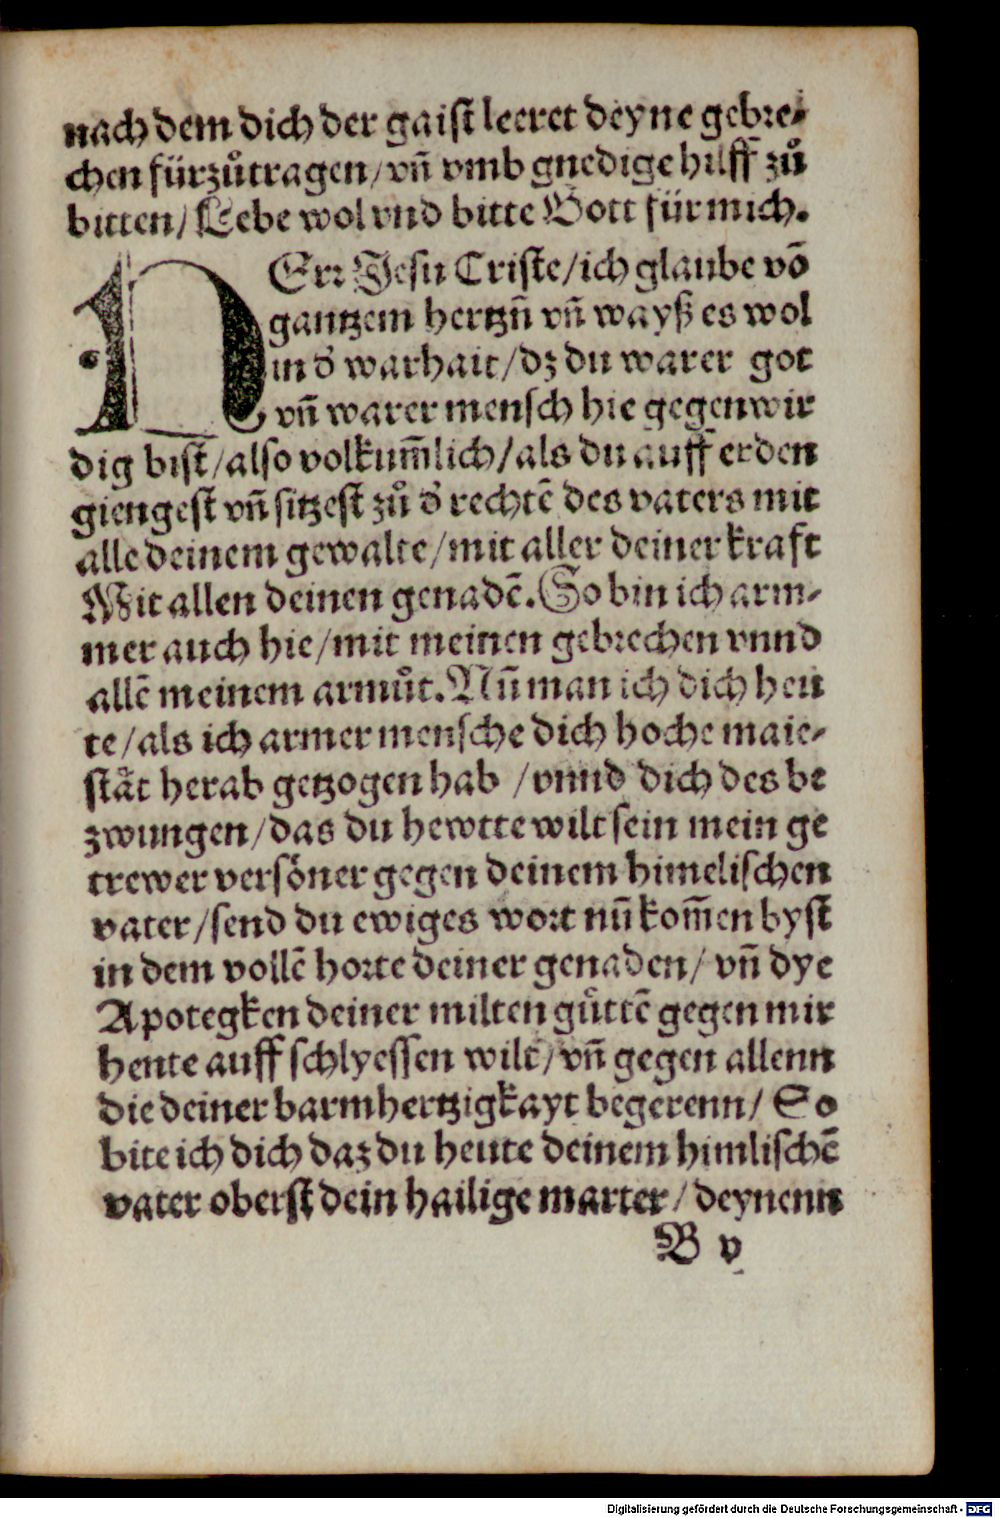 nach dem dich der gaist leeret deyne gebre-
chen fürzůtragen/ vñ vmb gnedige hilff zů
bitten/ Lebe wol vnd bitte Gott für mich.
HErr Jesu Criste/ich glaube võ
gantzem hertzñ vñ wayß es wol
in d̓ warhait/dz du warer got
vñ warer mensch hie gegenwir
dig bist/also volkum̃lich/als du auff erden
giengest vñ sitzest zů d̓ rechtẽ des vaters mit
alle deinem gewalte/mit aller deiner kraft
Mit allen deinen genadẽ. So bin ich arm-
mer auch hie/mit meinen gebrechen vnnd
allẽ meinem armůt. Nũ man ich dich heu
te/als ich armer mensche dich hoche maie-
stät herab getzogen hab /vnnd dich des be
zwungen/das du hewtte wilt sein mein ge
trewer versöner gegen deinem himelischen
vater/send du ewiges wort nũ kom̃en byst
in dem vollẽ horte deiner genaden/ vñ dye
Apotegken deiner milten güttẽ gegen mir
heute auff schlyessen wilt/ vñ gegen allenn
die deiner barmhertzigkayt begerenn/ So
bite ich dich daz du heute deinem himlischẽ
vater oberst dein hailige marter/ deynenn
B v
Digitalisierung gefördert durch die Deutsche Forschungsgemeinschaft - DFG